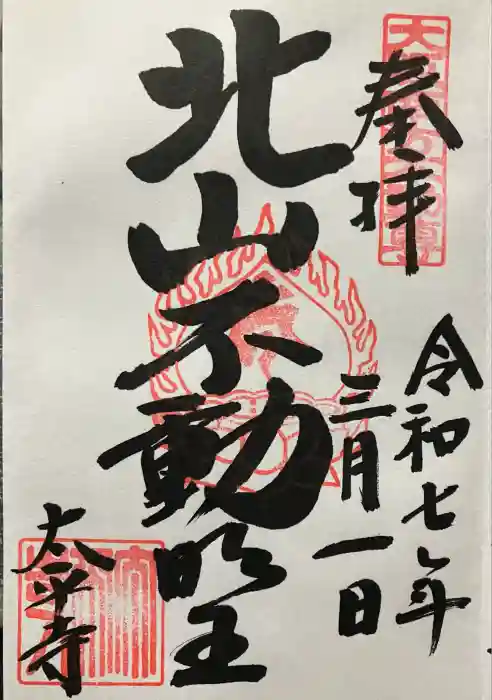 奉拝
令和七年
三月一日
北山不動明王
太平寺